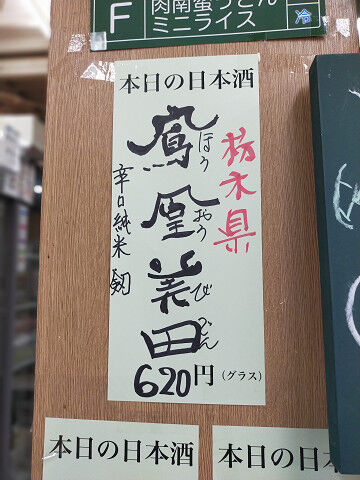 F
肉南蛮うどん
ミニライス
冷
本日の日本酒
栃木県
鳳凰美田
ほう
おう
び
でん
辛口純米 剱
620円 (グラス)
本日の日本酒
本日の日本